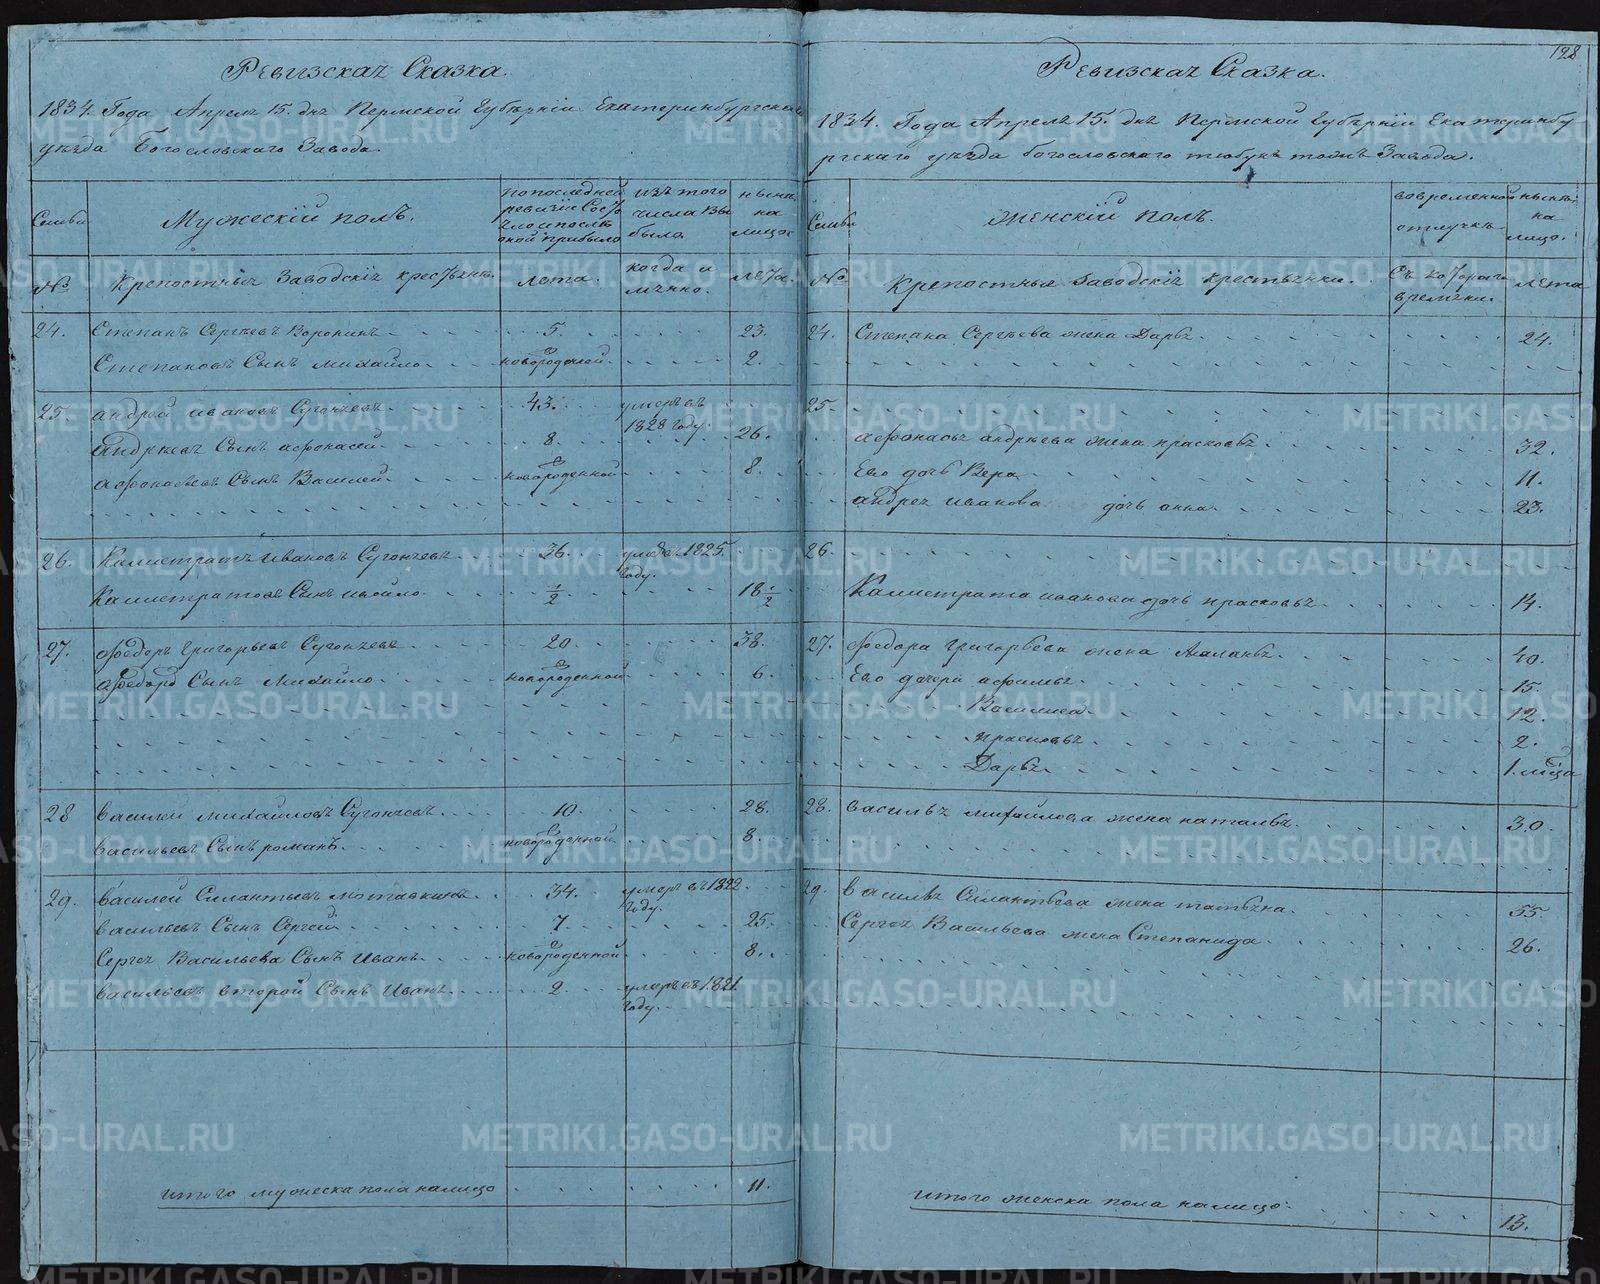 Ревизская Сказка.
1834. Года Апреля 15. дня Пермской Губерніи Екатеринбургскаго
уезда Богословскаго Завода.
Семьи
Мужескій полъ.
по последней
ревизіи Сос
тояло и после
оной прибыло
изъ того
числа вы
было.
ныне
на
лицо.
№
Крепостныя Заводскія крестьяне.
лета.
когда и
лета.
24.
Степанъ Сергеевъ Воронинъ
5.
23.
Степановъ Сынъ михайло
новорожденой
2.
25.
андрей ивановъ Сугоняевъ
43.
умеръ въ
1828 году.
андреевъ Сынъ афонасей
8.
26.
афонасьевъ Сынъ Василей
новорожденной
8.
26.
Калистратъ ивановъ Сугоняевъ
36.
умеръ 1825.
году.
Калистратовъ Сынъ
1/2
18 1/2
27.
Федоръ Григорьевъ Сугоняевъ
20.
38.
Федоро Сынъ Михайло
новорожденной
6.
28
Василей михайловъ Сугоняевъ
10.
28.
Васильевъ Сынъ романъ
новорожденной
8.
29.
Василей Силантьевъ
34.
умеръ въ 1822
году.
Васильевъ Сынъ Сергей
7.
25.
Сергея Васильева Сынъ Иванъ
новорожденной
8.
Васильевъ второй Сынъ Иванъ
2.
умеръ въ 1821
году.
итого мужеска пола налицо
11.
128
Ревизская Сказка.
1834. Года Апреля 15. дня Пермской Губерніи Екатеринбу
ргскаго уезда богословскаго тожъ Завода.
Семьи
женскій полъ.
во временной
отлучке
ныне
на
лицо.
№
Крепостныя Заводскія крестьянки.
съ котораго
времяни.
лета
24.
Степана Сергеева жена Дарья
24.
25.
афонасья андреева жена прасковья
32.
Ево дочь Вера
11.
андрея иванова дочь анна
23.
26.
Калистрата иванова дочь прасковья
14.
27.
Федора Григорьева жена
40.
Ево дочери афимья
15.
Василиса
12.
прасковья
2.
Дарья
1.
28.
Василья михайлова жена наталья
30.
29.
Василья Силантьева жена татьяна
55
Сергея Васильева жена Степанида
26.
итого женска пола налицо
13.
METRIKI.GASO-URAL.RU